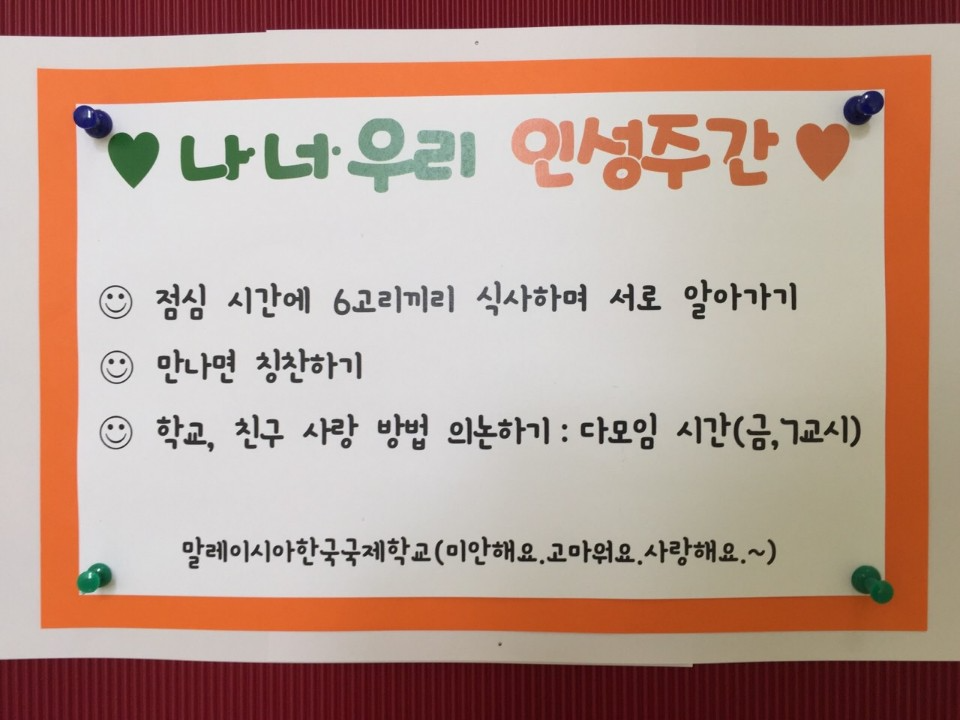 ♥나·너·우리 인성주간♥
☺ 점심 시간에 6고리끼리 식사하며 서로 알아가기
☺ 만나면 칭찬하기
☺ 학교, 친구 사랑 방법 의논하기 : 다모임 시간(금,7교시)
말레이시아한국국제학교(미안해요.고마워요.사랑해요.~)